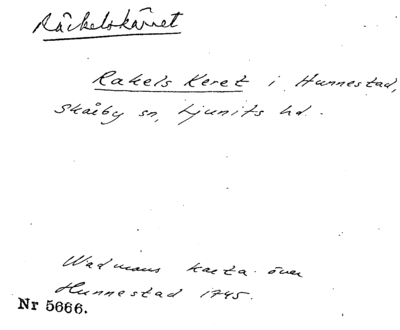 Räckelskärret
Rakels Keret i Hunnestad,
Skårby sn, Ljunits hd.
Wadmans karta över
Hunnestad 1745.
Nr 5666.